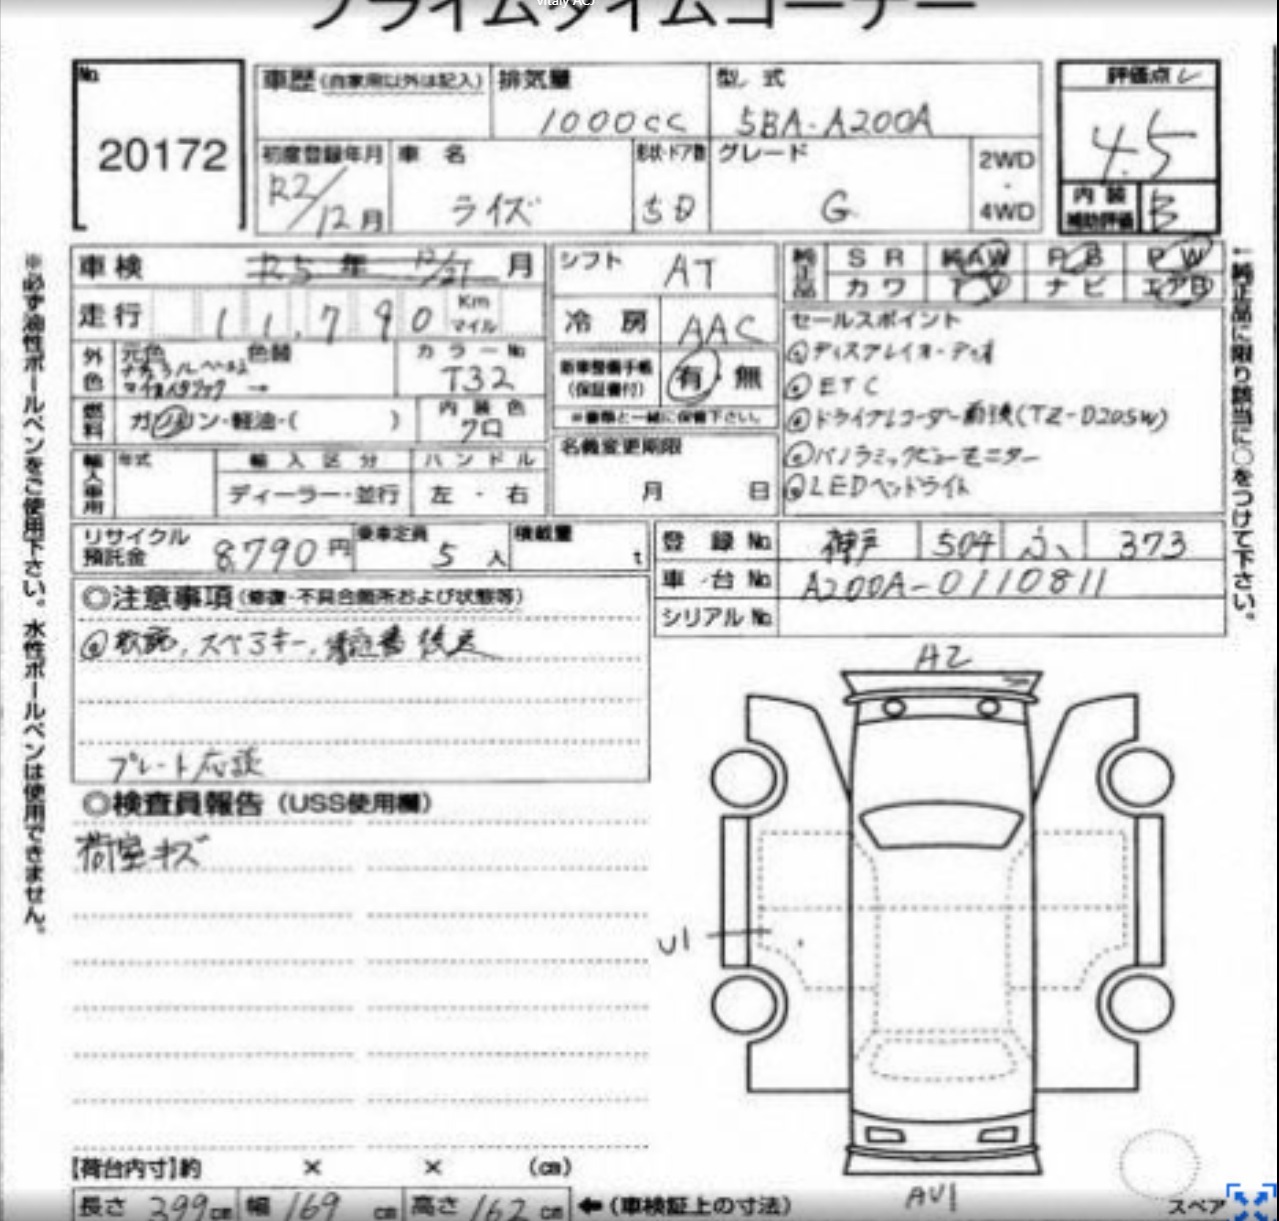 プライムタイムコーナー
Vitaly ACJ
No.
20172
車歴 (自家用以外は記入)
排気量
1000cc
型式
5BA-A200A
評価点
4.5
内装
補助評価
B
初度登録年月
R2/12月
車名
ライズ
形状・ドア数
5D
グレード
G
2WD
・
4WD
車検 R5年 12/21 月
走行 11,790 Km マイル
シフト AT
冷房 AAC
純正品 SR 純AW PS PW
カワ TV ナビ エアB
外色 元色 色替
マイカメタリック →
カラーNo.
T32
新車整備手帳
(保証書付)
有・無
※書類と一緒に保管下さい。
燃料 ガソリン・軽油・( )
内装色
クロ
セールスポイント
ディスプレイオーディオ
ETC
ドライブレコーダー前後(TZ-D205W)
パノラミックビューモニター
LEDヘッドライト
名義変更期限
月 日
輸入車用 年式 輸入区分 ハンドル
ディーラー・並行 左・右
リサイクル
預託金 8790円
乗車定員 5人
積載量 t
登録No. 神戸 504 ふ 373
車台No. A200A-0110811
シリアルNo.
※必ず油性ボールペンをご使用下さい。水性ボールペンは使用できません。
←純正品に限り該当に○をつけて下さい。
◎注意事項 (修復・不具合箇所および状態等)
取説、スペアキー、 後送
プレート応談
◎検査員報告 (USS使用欄)
荷室キズ
A2
U1
AU1
スペア
【荷台内寸】約 × × (cm)
長さ 399cm 幅 169 cm 高さ 162 cm ←(車検証上の寸法)